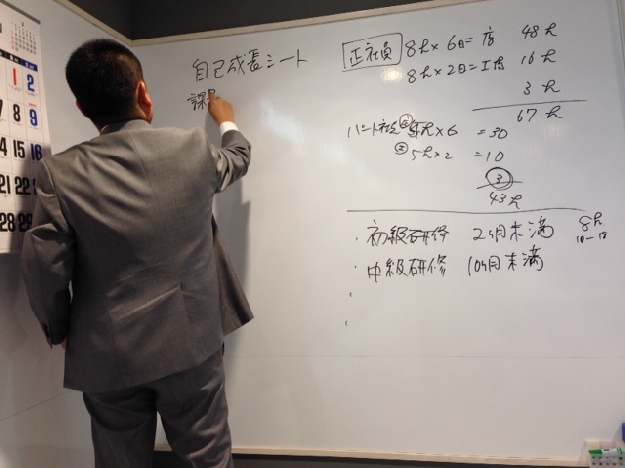 自己成長シート
課
正社員 8h×6日=店 48h
8h×2日=工店 16h
3h
67h
パート社 ② 5h×6 =30
② 5h×2 =10
③
43h
・初級研修 2ヶ月末満 8h
・中級研修 10ヶ月末満
・
・
1 2
7 8 9
14 15 16
21 22 23
28 29